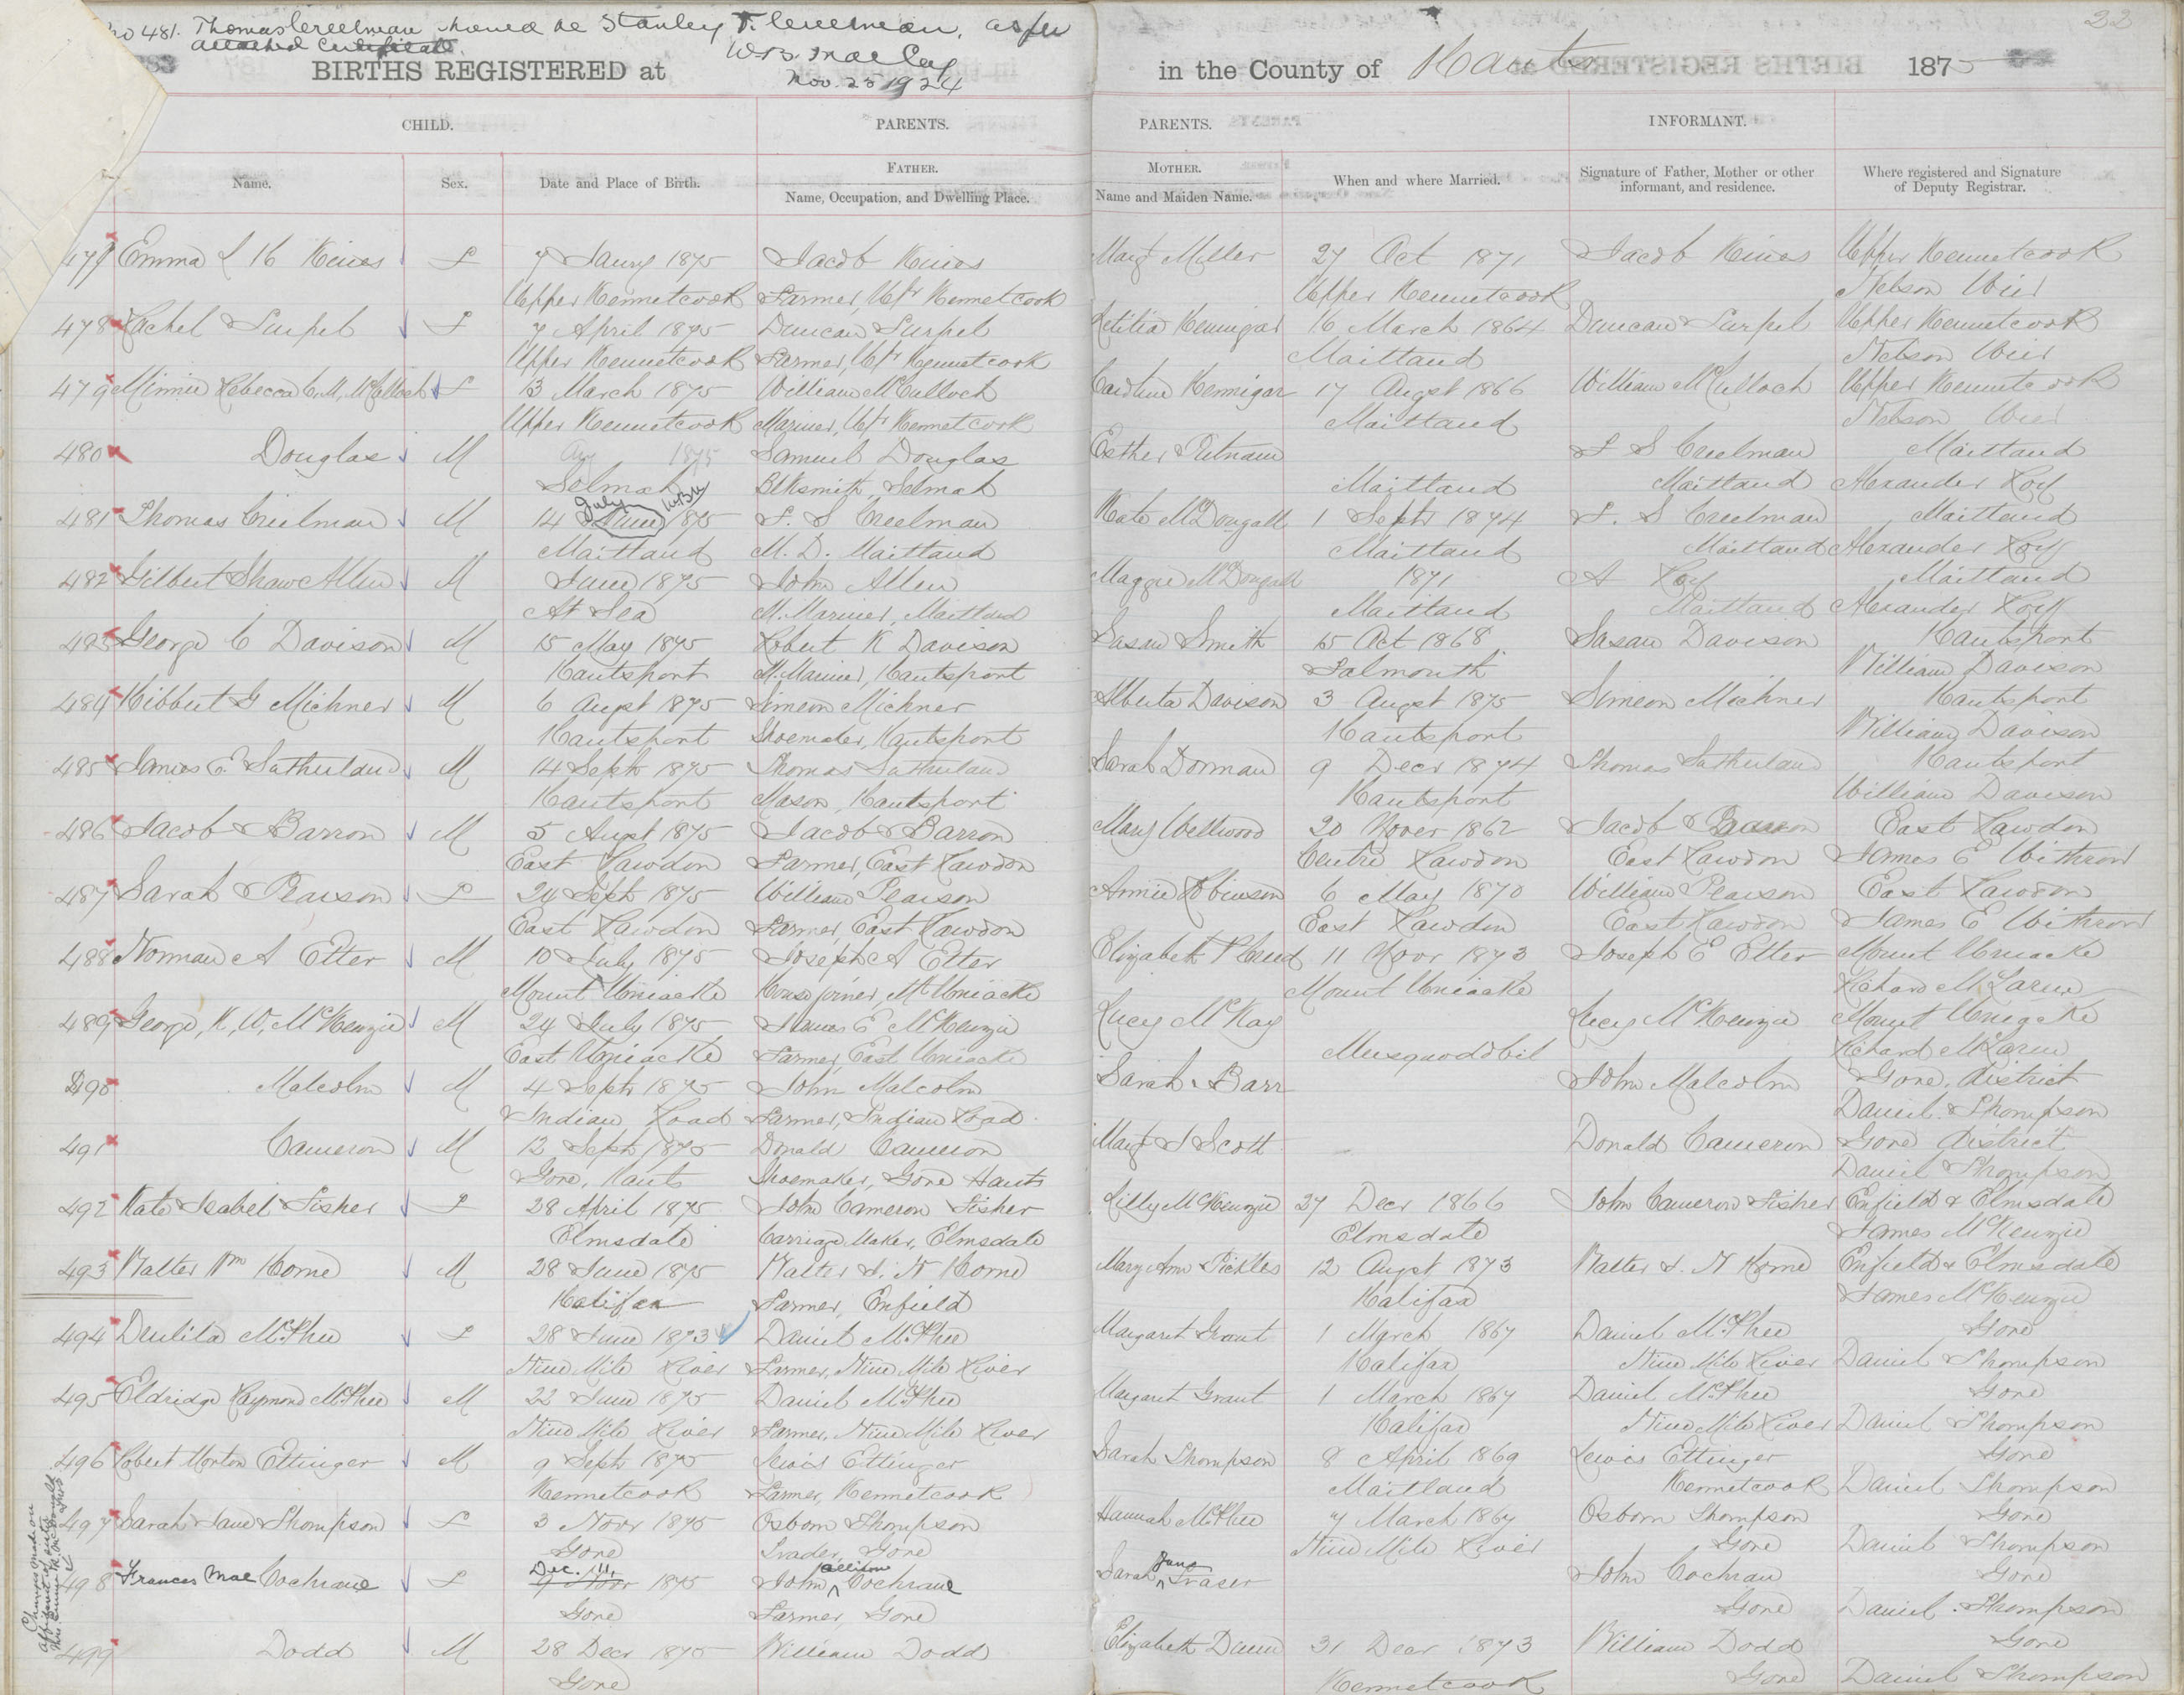 No 481. Thomas Creelman should be Stanley T. Creelman, as per
attached certificate.
W.B. MacCay
Nov. 25 1924
22
BIRTHS REGISTERED at in the County of Hants 187
CHILD. PARENTS. PARENTS. INFORMANT.
Name. Sex. Date and Place of Birth. FATHER. Name, Occupation, and Dwelling Place. MOTHER. Name and Maiden Name. When and where Married. Signature of Father, Mother or other informant, and residence. Where registered and Signature of Deputy Registrar.
477 Emma L H Hines F 7 Jany 1875 Jacob Hines Margt Miller 27 Oct 1871 Jacob Hines Upper Kennetcook
Upper Kennetcook Farmer, Upr Kennetcook Upper Kennetcook Nelson Wier
478 Rachel F 7 April 1875 Duncan Letitia Hennigar 16 March 1864 Duncan Upper Kennetcook
Upper Kennetcook Farmer, Upr Kennetcook Maitland Nelson Wier
479 Minnie Rebecca C. M. McCulloch F 3 March 1875 William McCulloch Caroline Hennigar 17 Augst 1866 William McCulloch Upper Kennetcook
Upper Kennetcook Mariner, Upr Kennetcook Maitland Nelson Wier
480 Douglas M 1875 Samuel Douglas Esther Putnam F S Creelman Maitland
Selmah Blksmith, Selmah Maitland Maitland Alexander Roy
July W.B.M.
481 Thomas Creelman M 14 June 1875 F. S Creelman Kate McDougall 1 Septr 1874 F. S Creelman Maitland
Maitland M. D. Maitland Maitland Maitland Alexander Roy
482 Gilbert Shaw Allen M June 1875 John Allen Maggie McDougall 1871 A Roy Maitland
At Sea M. Mariner, Maitland Maitland Maitland Alexander Roy
483 George C Davison M 15 May 1875 Robert K Davison Susan Smith 15 Oct 1868 Susan Davison Hantsport
Hantsport M. Mariner, Hantsport Falmouth William Davison
484 Hibbert G Michner M 6 Augst 1875 Simeon Michner Alberta Davison 3 Augst 1875 Simeon Michner Hantsport
Hantsport Shoemaker, Hantsport Hantsport William Davison
485 James E. Sutherland M 14 Septr 1875 Thomas Sutherland Sarah Dorman 9 Decr 1874 Thomas Sutherland Hantsport
Hantsport Mason, Hantsport Hantsport William Davison
486 Jacob Barron M 5 Augst 1875 Jacob Barron Mary Wellwood 20 Nover 1862 Jacob Barron East Rawdon
East Rawdon Farmer, East Rawdon Centre Rawdon East Rawdon James E Withrow
487 Sarah Pearson F 24 Septr 1875 William Pearson Annie Robinson 6 May 1870 William Pearson East Rawdon
East Rawdon Farmer, East Rawdon East Rawdon East Rawdon James E Withrow
488 Norman A Etter M 10 July 1875 Joseph A Etter Elizabeth 11 Novr 1873 Joseph E Etter Mount Uniacke
Mount Uniacke House joiner, Mt Uniacke Mount Uniacke Richard McLaren
489 George, K, W, McKenzie M 24 July 1875 James E McKenzie Lucy McKay Lucy McKenzie Mount Uniacke
East Uniacke Farmer, East Uniacke Musquodobit Richard McLaren
490 Malcolm M 4 Septr 1875 John Malcolm Sarah Barr John Malcolm Gore, District
Indian Road Farmer, Indian Road Daniel Thompson
491 Cameron M 12 Septr 1875 Donald Cameron Margt J Scott Donald Cameron Gore District
Gore, Hants Shoemaker, Gore Hants Daniel Thompson
492 Kate Isabel Fisher F 28 April 1875 John Cameron Fisher Lilly McKenzie 27 Decr 1866 John Cameron Fisher Enfield & Elmsdate
Elmsdate Carriage Maker, Elmsdate Elmsdate James McKenzie
493 Walter Wm Horne M 28 June 1875 Walter J. N Horne Mary Ann Pickles 12 Augst 1873 Walter J. N Horne Enfield & Elmsdate
Halifax Farmer, Enfield Halifax James McKenzie
494 Drulita McPhee F 28 June 1873 Daniel McPhee Margaret Grant 1 March 1867 Daniel McPhee Gore
Nine Mile River Farmer, Nine Mile River Halifax Nine Mile River Daniel Thompson
495 Eldridge Raymond McPhee M 22 June 1875 Daniel McPhee Margaret Grant 1 March 1867 Daniel McPhee Gore
Nine Mile River Farmer, Nine Mile River Halifax Nine Mile River Daniel Thompson
496 Robert Morton Ettinger M 9 Septr 1875 Lewis Ettinger Sarah Thompson 8 April 1869 Lewis Ettinger Gore
Kennetcook Farmer, Kennetcook Maitland Kennetcook Daniel Thompson
497 Sarah Jane Thompson F 3 Novr 1875 Osborn Thompson Hannah McPhee 7 March 1867 Osborn Thompson Gore
Gore Trader, Gore Nine Mile River Gore Daniel Thompson
Dec. 11, allison Jane
498 Frances Mae Cochrane F 9 Novr 1875 John Cochrane Sarah Fraser John Cochran Gore
Gore Farmer, Gore Gore Daniel Thompson
499 Dodd M 28 Decr 1875 William Dodd Elizabeth Dunn 31 Decr 1873 William Dodd Gore
Gore Kennetcook Gore Daniel Thompson
Changes made on
affidavit of